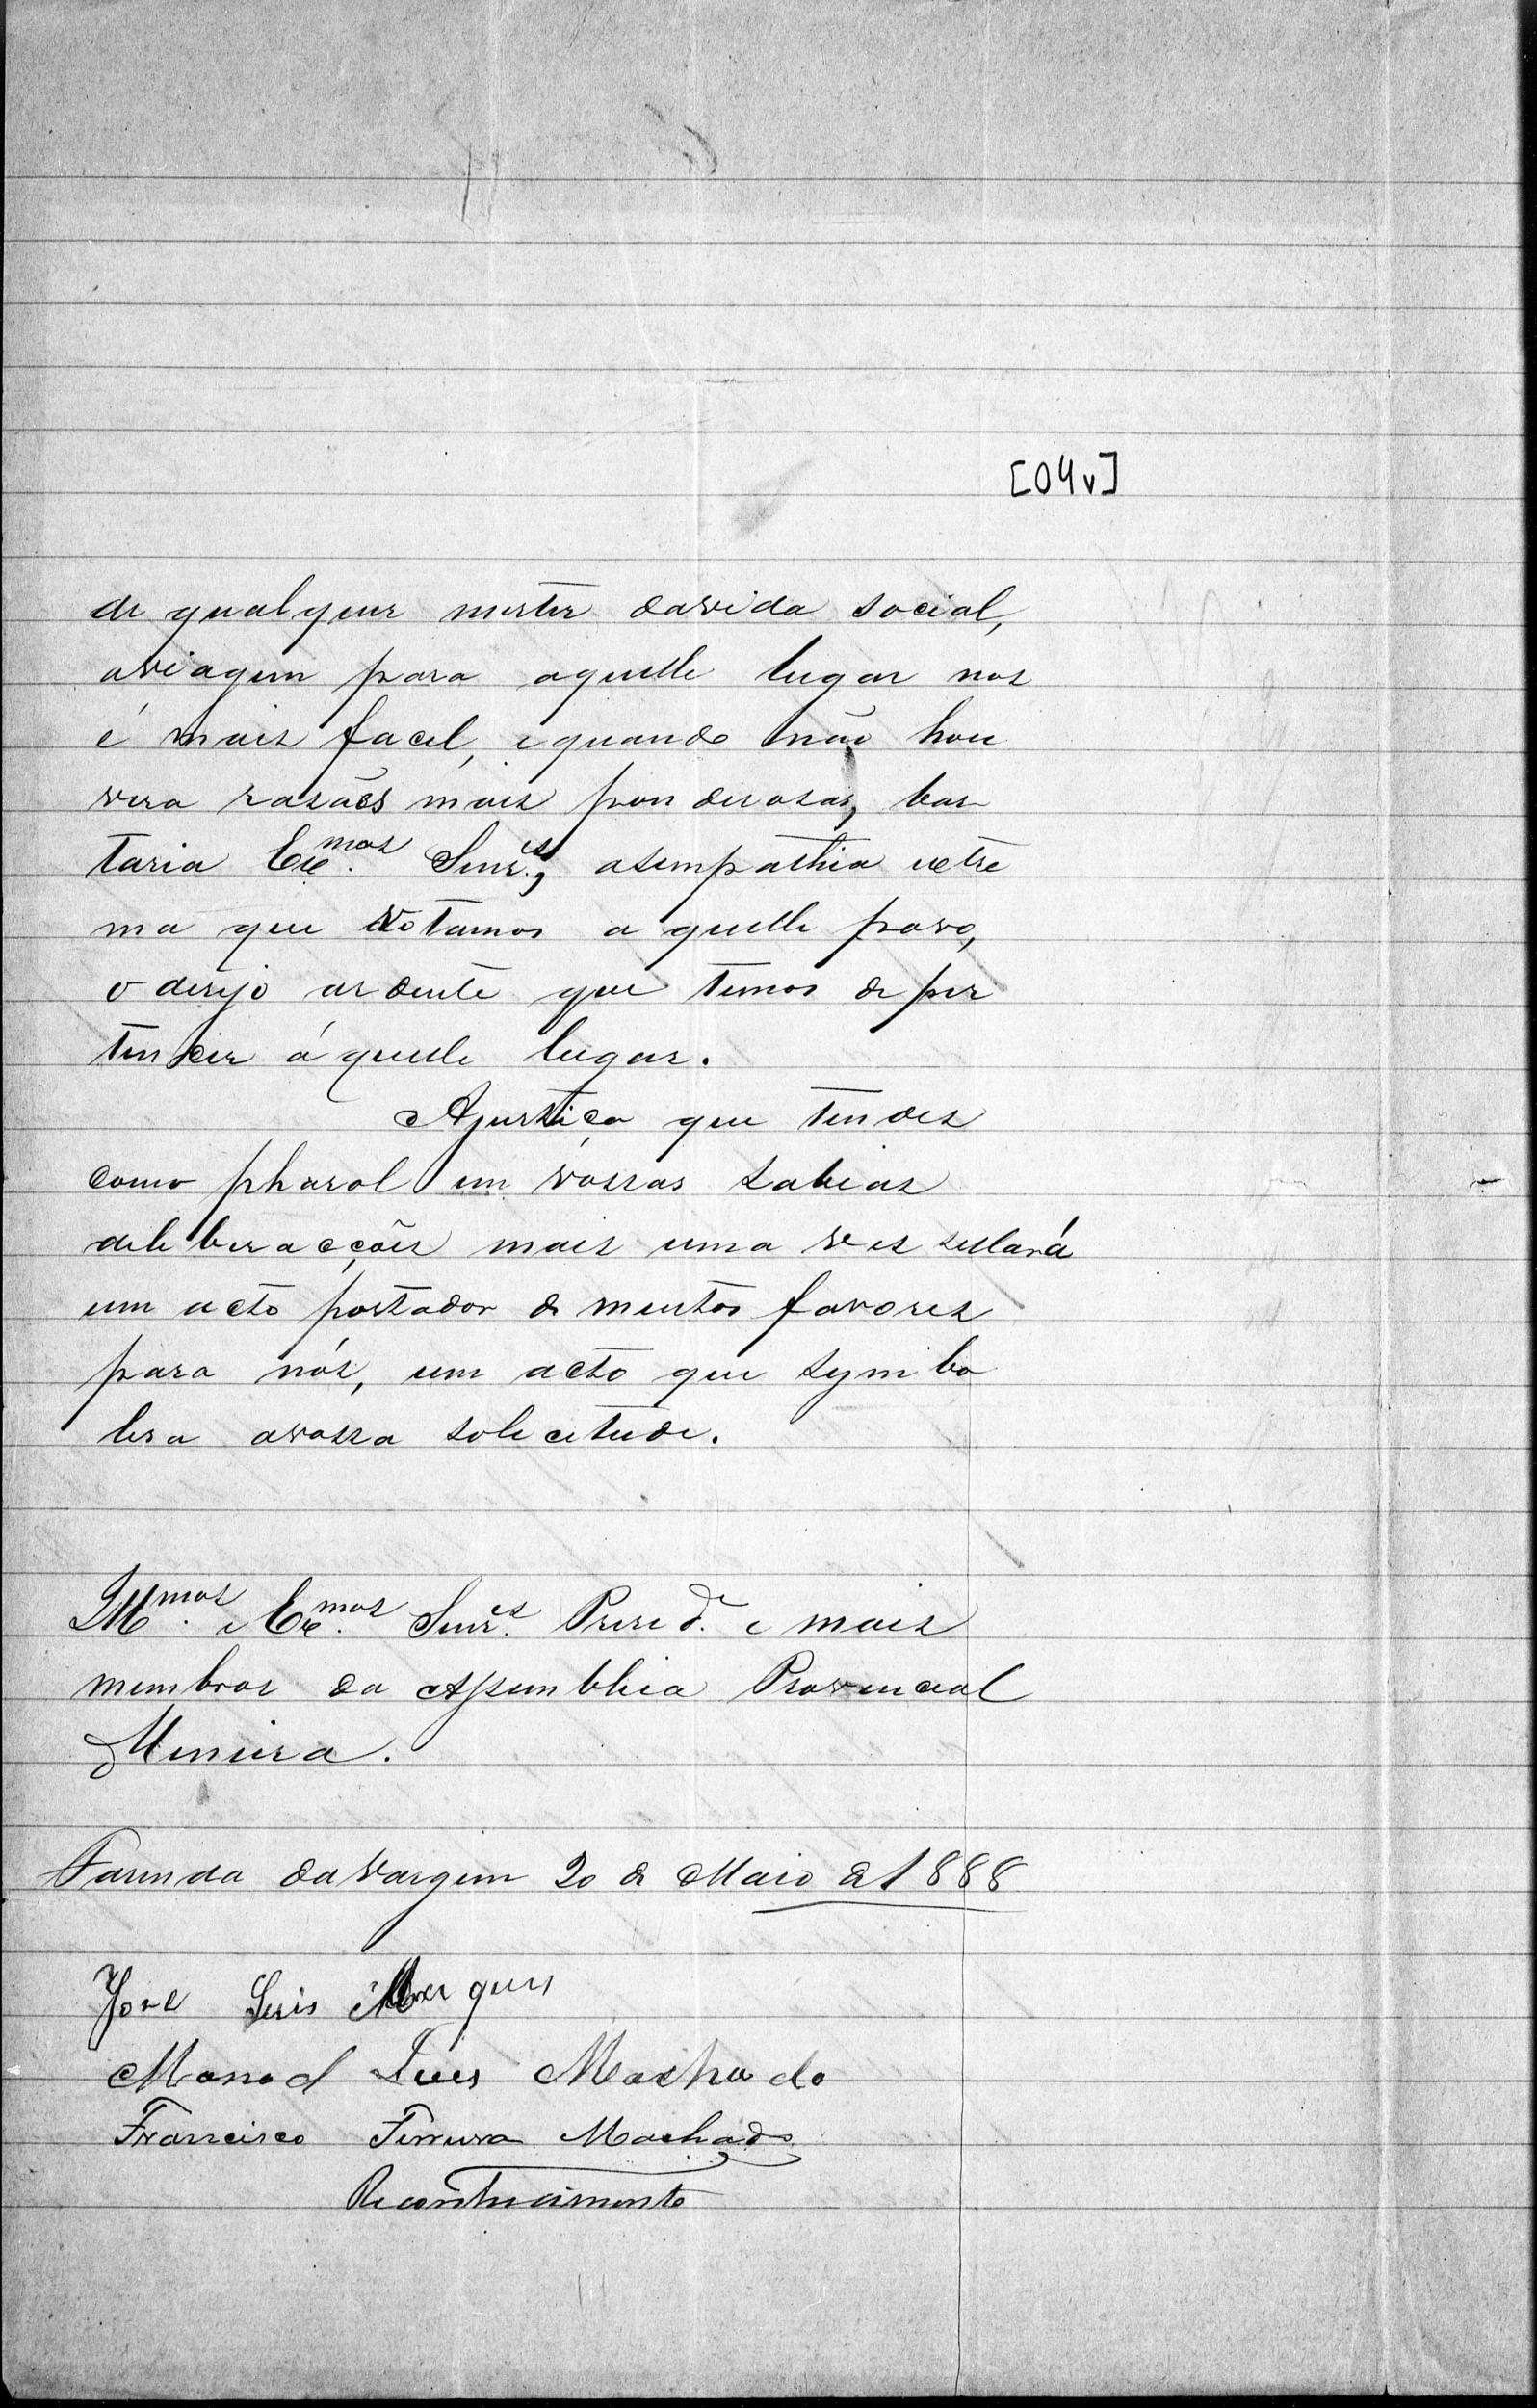 [04v]
de qualquer mister davida social,
aviagem para aquelle lugar nos
é mais facel, equando não hou
vera rasaões mais ponderosas, bas
taria Exc.mos Snr.es, asimpathia extre
ma que votamos a quelle povo,
o desejo ardente que temos de per
tencer áquelle lugar.
Ajustiça que tendes
como pharol em vossas sabias
deleberacções mais uma ves sellará
um acto portador de muitos favores
para nós, um acto que symbo
lisa avossa solecitude.
Ill.mos e Exc.mos Snr.es Presid.e e mais
membros da Assemblea Provencial
Mineira.
Fasenda davargem 20 de Maio de 1888
Jose Luis Marques
Manoel Luis Machado
Francisco Ferreira Machado
Reconhecimento